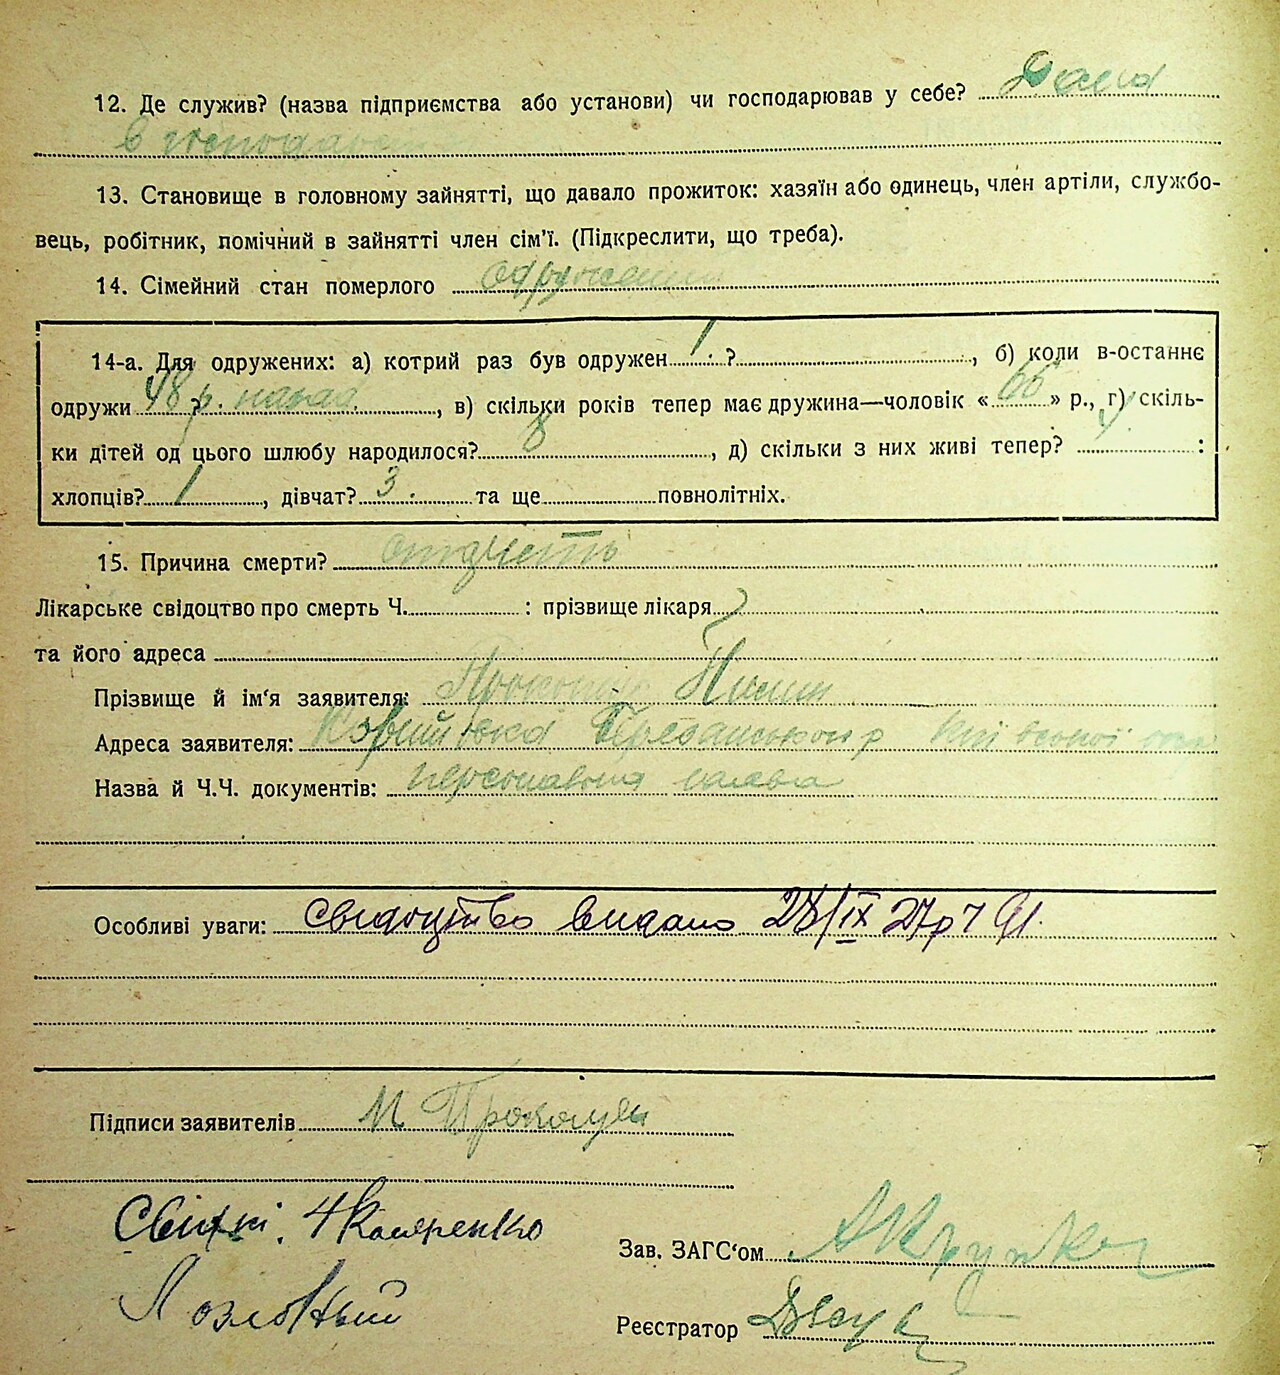 12. Де служив? (назва підприємства або установи) чи господарював у себе? Дома
в господарстві
13. Становище в головному зайнятті, що давало прожиток: хазяїн або одинець, член артіли, службо-
вець, робітник, помічний в зайнятті член сім'ї. (Підкреслити, що треба).
14. Сімейний стан померлого одружений
14-а. Для одружених: а) котрий раз був одружен 1 ?, б) коли в-останнє
одружи 48 р. назад ?, в) скільки років тепер має дружина—чоловік « 66 » р., г) скіль-
ки дітей од цього шлюбу народилося? 8, д) скільки з них живі тепер? 4 :
хлопців? 1, дівчат? 3. та ще повнолітніх.
15. Причина смерти?
Лікарське свідоцтво про смерть Ч. : прізвище лікаря
та його адреса
Прізвище й ім'я заявителя: Прокопец
Адреса заявителя: Березанського р Київської
Назва й Ч.Ч. документів: персональна заява
Особливі уваги: Свідоцтво видано 28/IX 27р
Підписи заявителів
Свідки:
Лозовый
Зав. ЗАГС'ом
Реєстратор